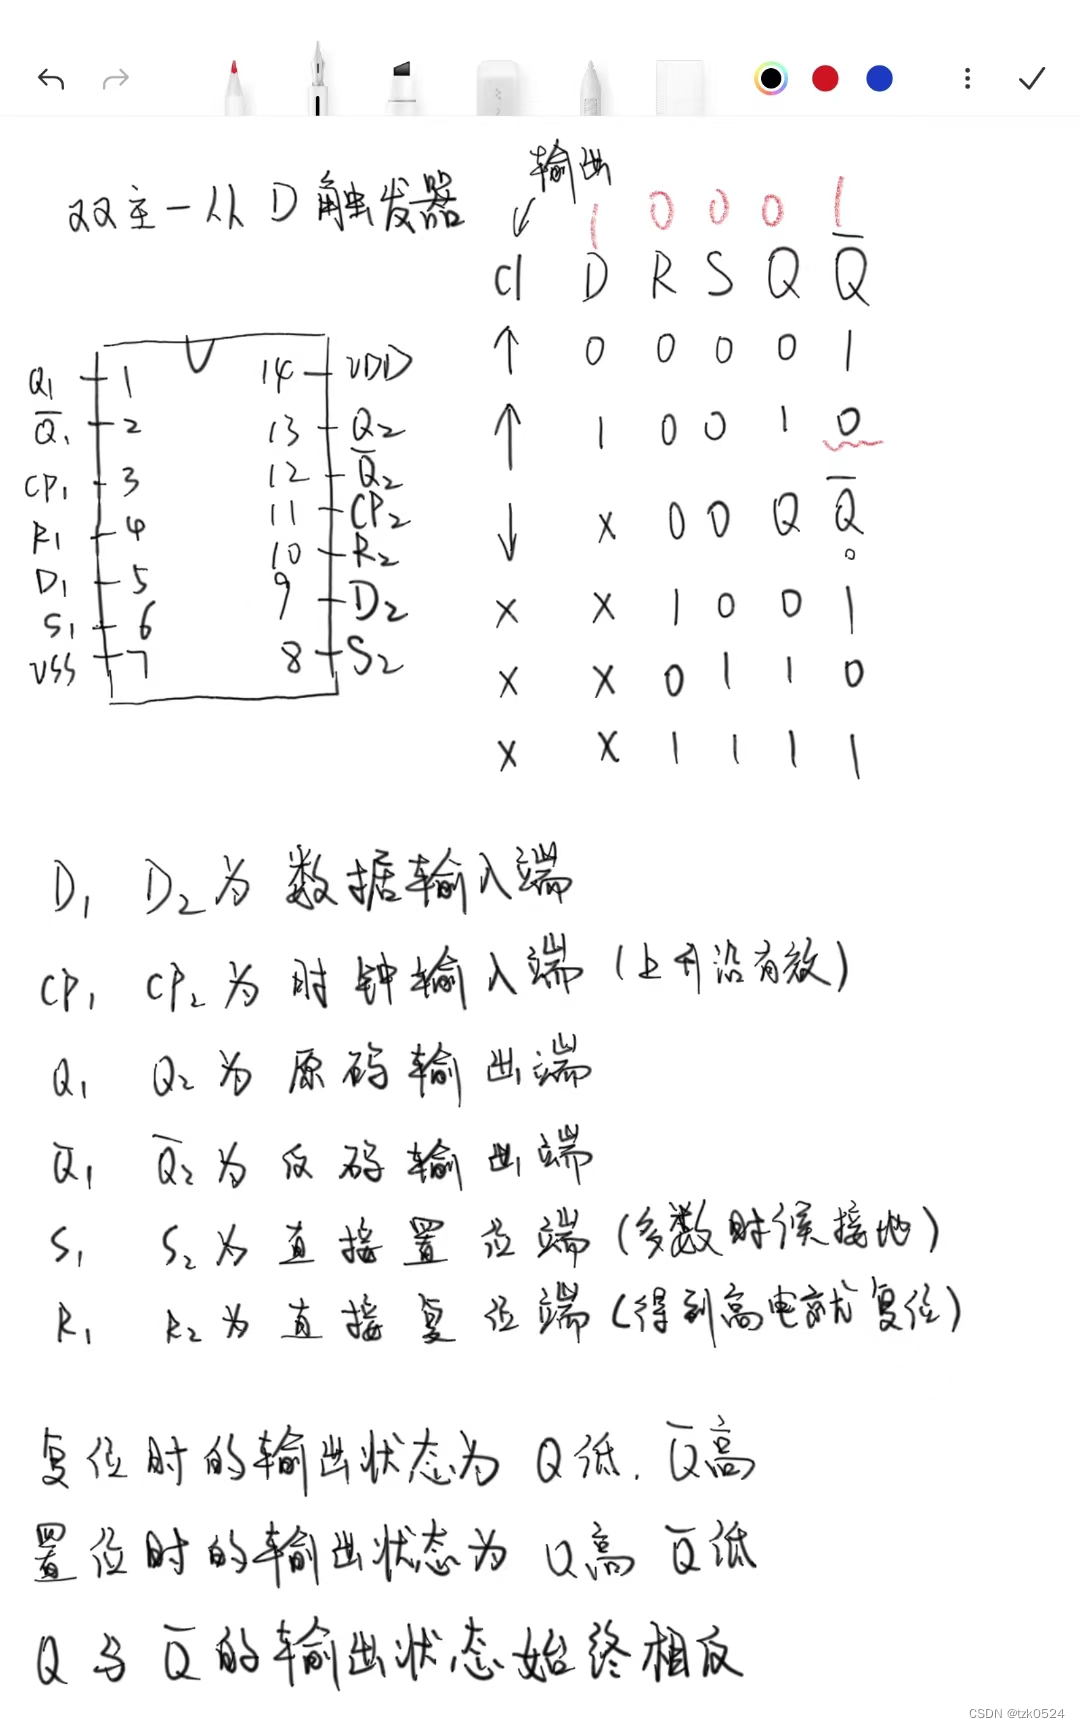 双主一从D触发器
输出
1 0 0 0 1
Cl D R S Q Q̅
↑ 0 0 0 0 1
↑ 1 0 0 1 0
↓ X 0 0 Q Q̅
0
X X 1 0 0 1
X X 0 1 1 0
X X 1 1 1 1
Q₁ 1 14 VDD
Q̅₁ 2 13 Q₂
CP₁ 3 12 Q̅₂
R₁ 4 11 CP₂
D₁ 5 10 R₂
S₁ 6 9 D₂
VSS 7 8 S₂
D₁ D₂为数据输入端
CP₁ CP₂为时钟输入端(上升沿有效)
Q₁ Q₂为原码输出端
Q̅₁ Q̅₂为反码输出端
S₁ S₂为直接置位端(多数时候接地)
R₁ R₂为直接复位端(得到高电就复位)
复位时的输出状态为Q低.Q̅高
置位时的输出状态为Q高 Q̅低
Q与Q̅的输出状态始终相反
CSDN @tzk0524